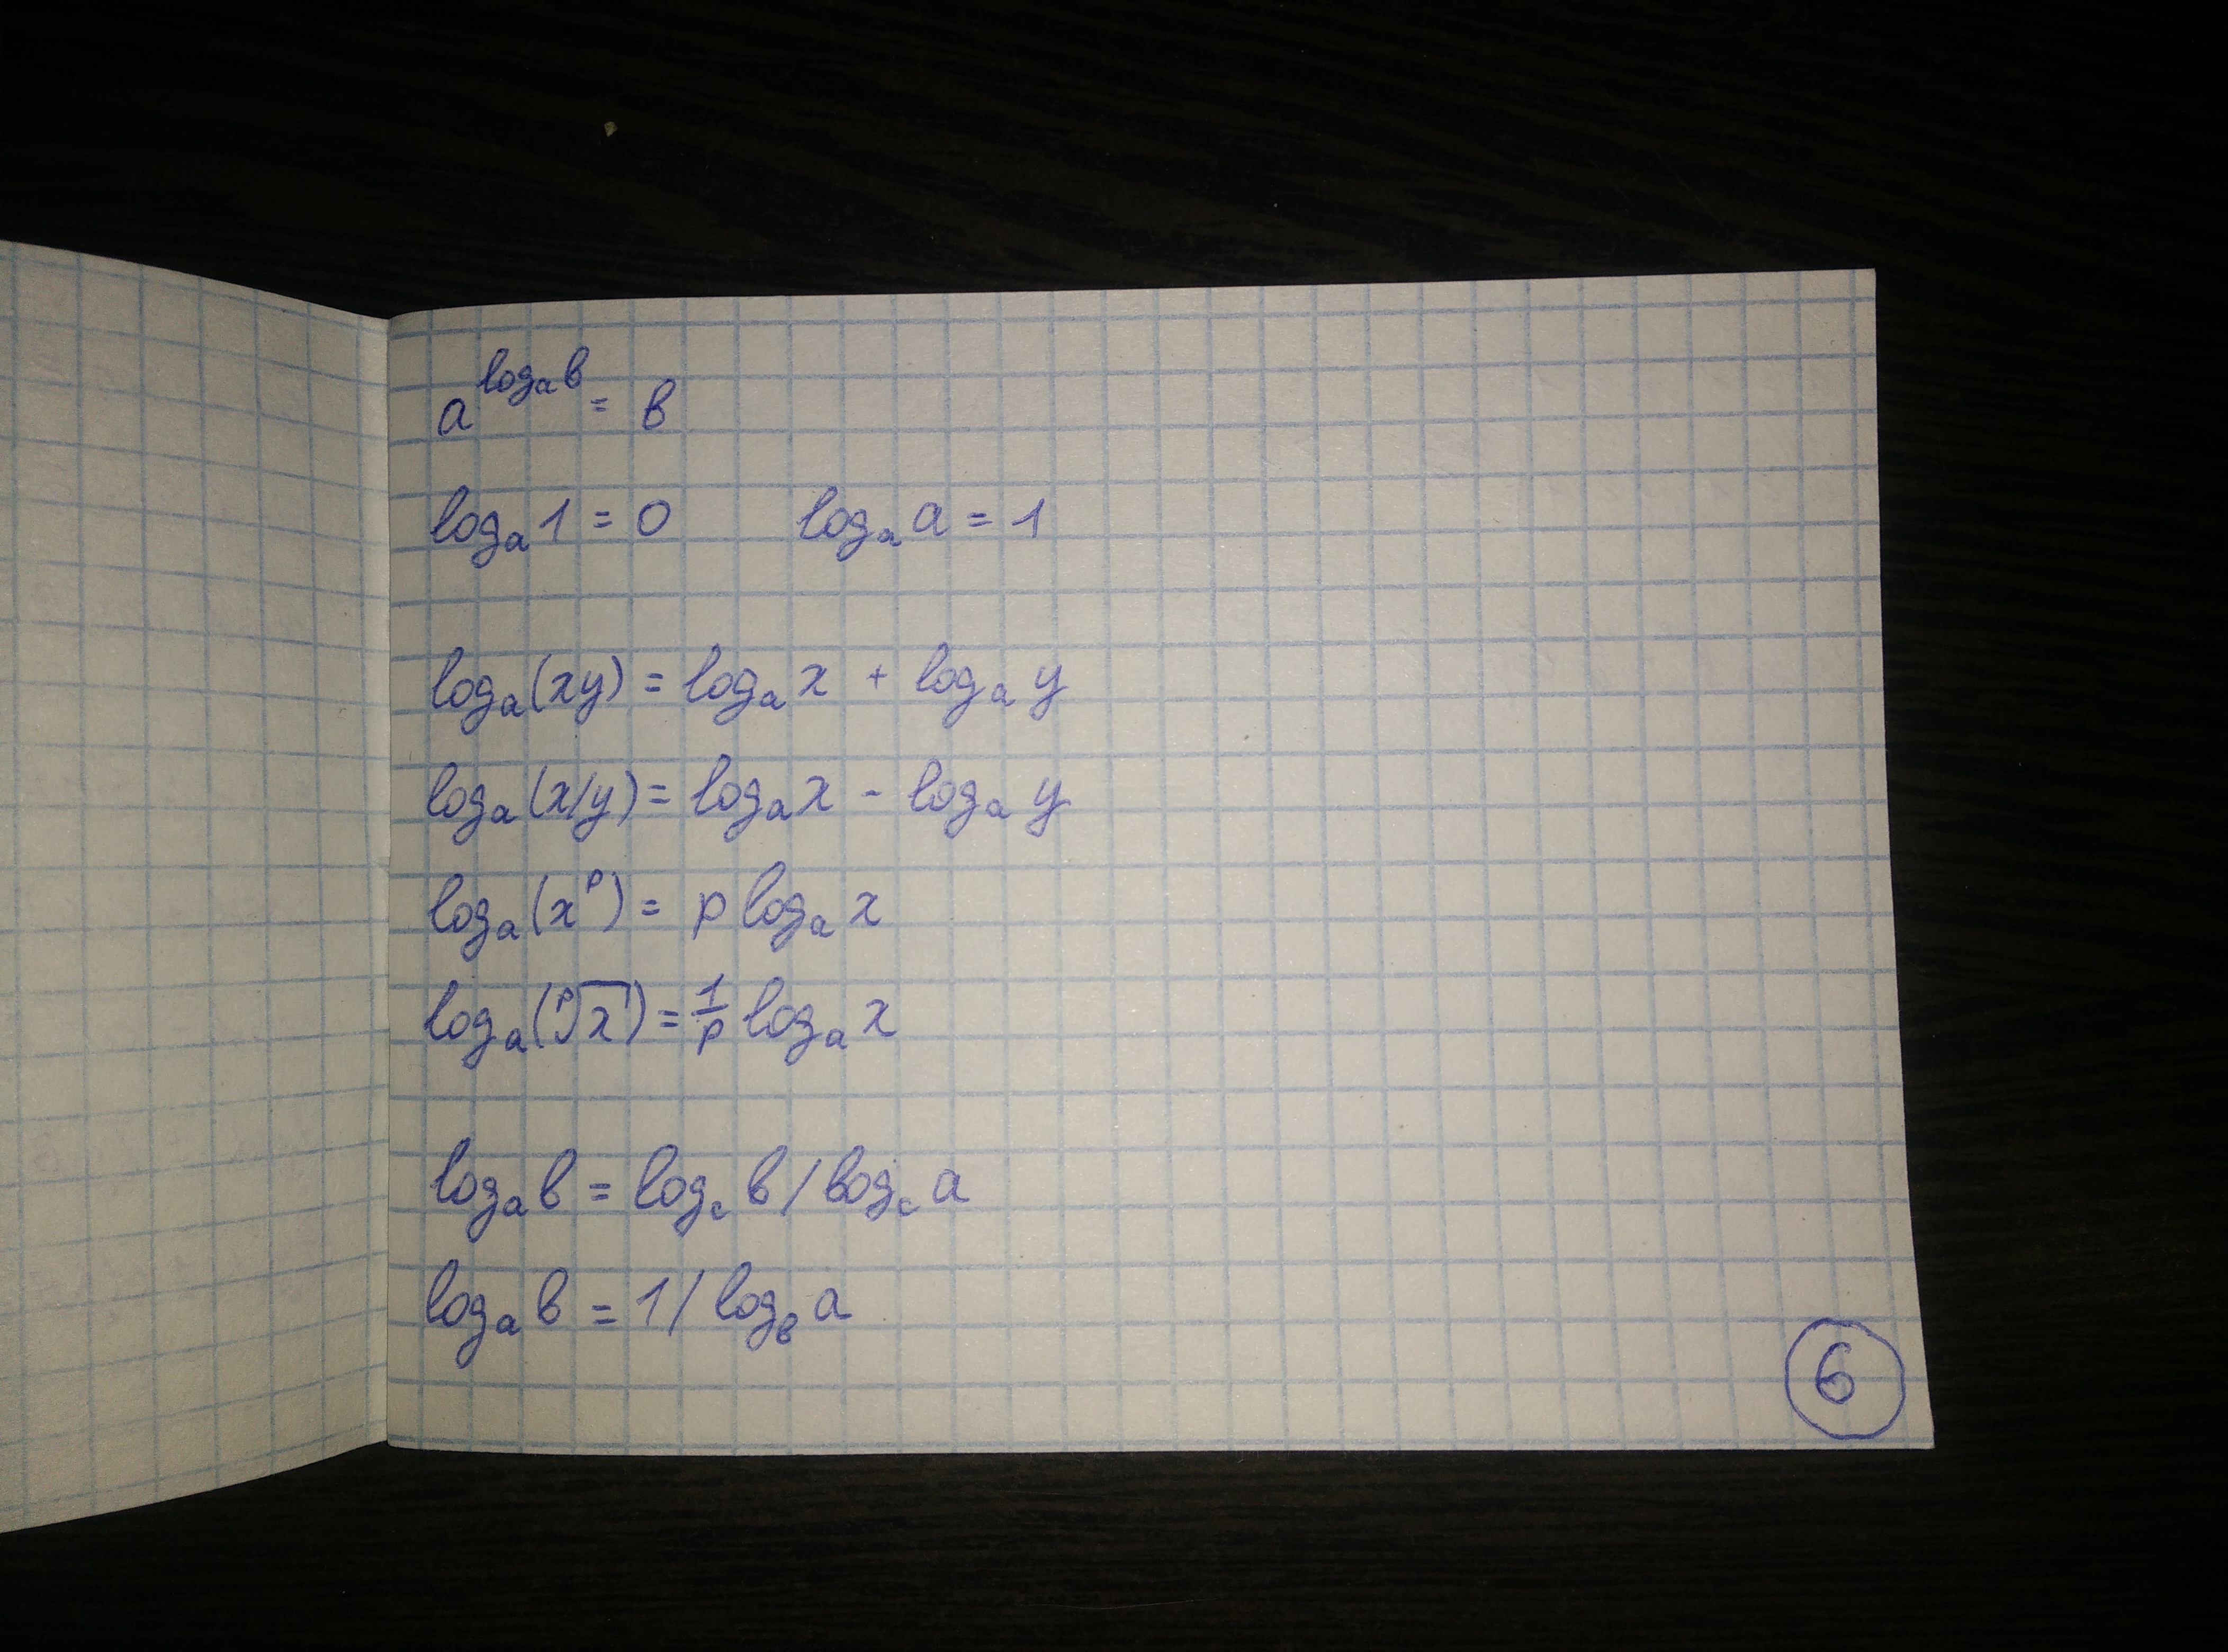 a^{log_a b} = b
log_a 1 = 0 log_a a = 1
log_a (xy) = log_a x + log_a y
log_a (x/y) = log_a x - log_a y
log_a (x^p) = p log_a x
log_a (\sqrt[p]{x}) = \frac{1}{p} log_a x
log_a b = log_c b / log_c a
log_a b = 1 / log_b a
6